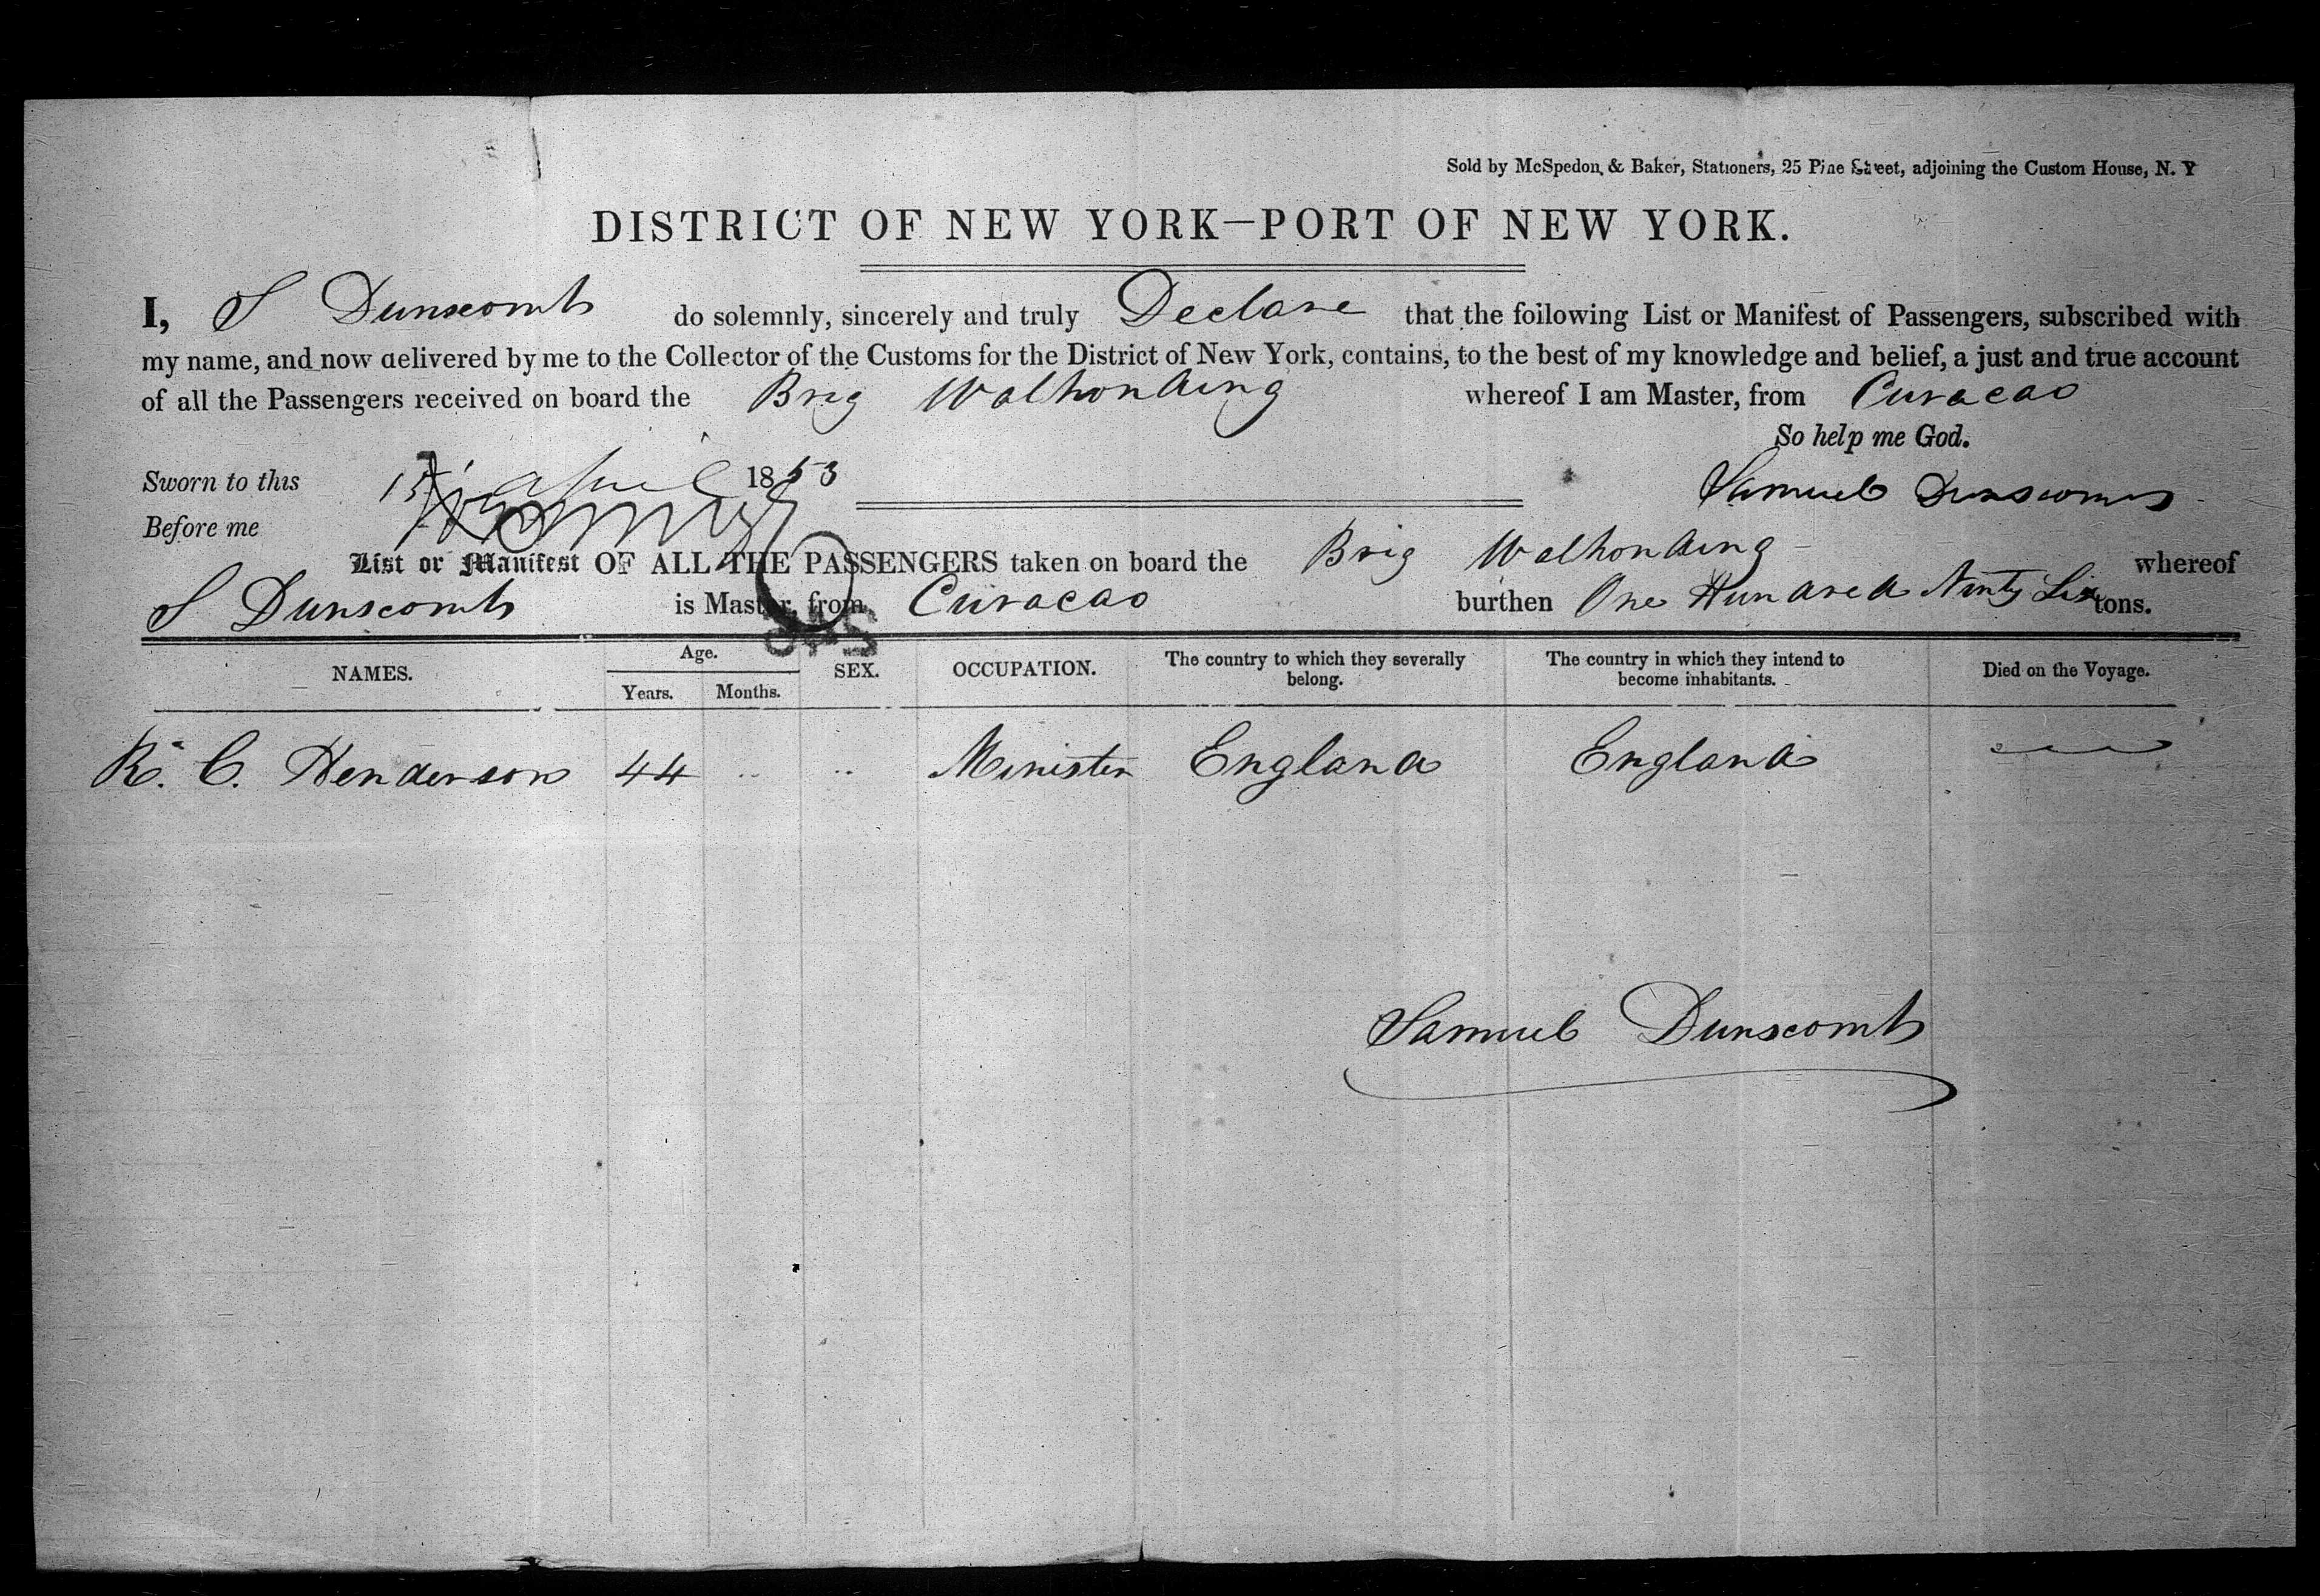 Sold by McSpedon & Baker, Stationers, 25 Pine Street, adjoining the Custom House, N. Y
DISTRICT OF NEW YORK—PORT OF NEW YORK.
I, S Dunscomb do solemnly, sincerely and truly Declare that the following List or Manifest of Passengers, subscribed with
my name, and now delivered by me to the Collector of the Customs for the District of New York, contains, to the best of my knowledge and belief, a just and true account
of all the Passengers received on board the Brig Walhonding whereof I am Master, from Curacao
So help me God.
Sworn to this April 1853 Samuel Dunscomb
Before me
List or Manifest OF ALL THE PASSENGERS taken on board the Brig Walhonding whereof
S Dunscomb is Master, from Curacao burthen One Hundred Ninty Six tons.
NAMES. Age. Years. Months. SEX. OCCUPATION. The country to which they severally belong. The country in which they intend to become inhabitants. Died on the Voyage.
R. C. Henderson 44 " " Minister England England
Samuel Dunscomb